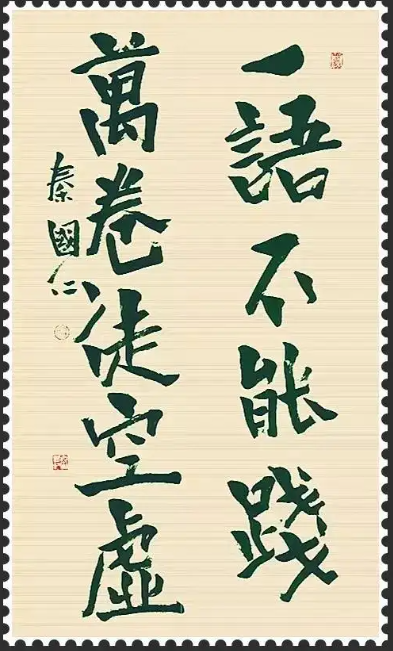 一語不能踐
萬卷徒空虛
秦國仁